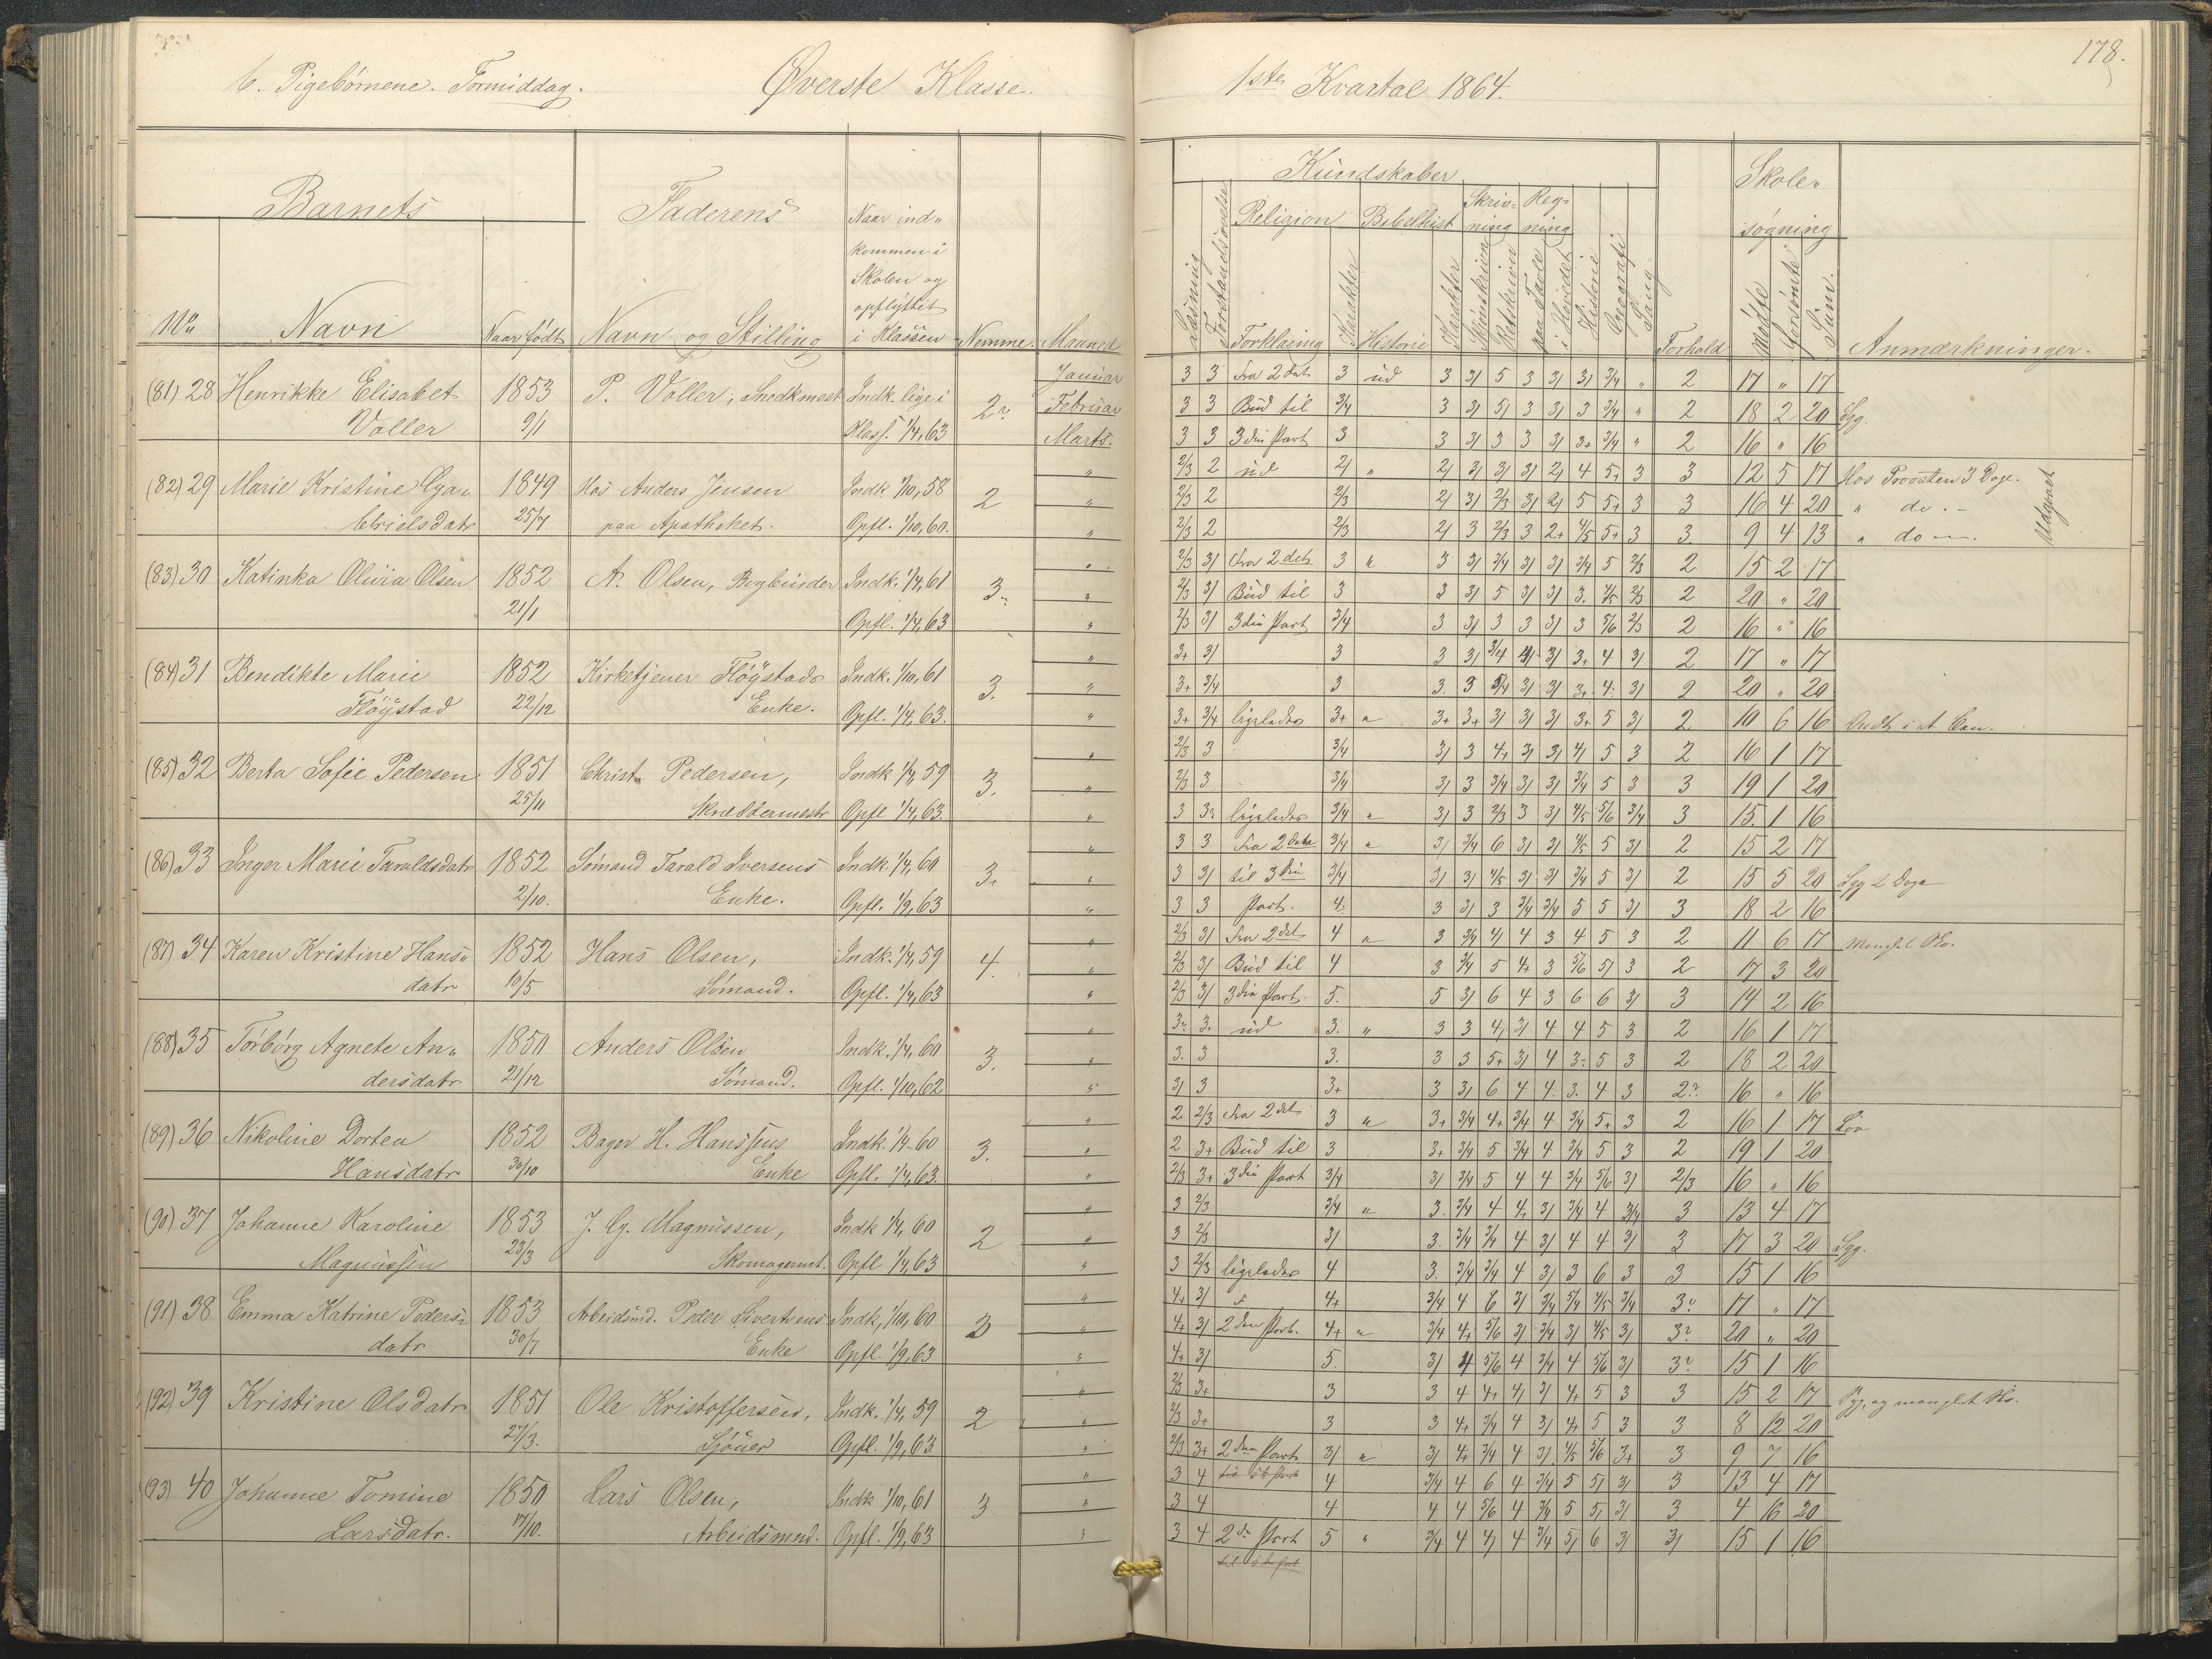 178.
b. Pigebørnene. Formiddag. Øverste Klasse. 1ste Kvartal 1864.
Barnets Faderens Naar ind-
kommen i
Skolen og
opflyttet
i Klassen
No Navn Naar født Navn og Stilling Nemme. Maaned
Kundskaber Skole-
søgning
Læsning Forstandsøvelse Religion Bibelhist Skriv-
ning Reg-
ning
Forklaring Karakter Historie Karakter Skjønskrivn Retskrivn paa Tavle i Hovedet Historie Geografi Sang Forhold Mødte Forsømte Sum. Anmærkninger.
(81) 28 Henrikke Elisabet 1853 P. Voller, Snedkmest Indk. lige i 2 Januar
Voller 9/1 Klass. 1/4, 63 Februar
Marts.
3 3 Fra 2det 3 ud 3 3/ 5 3 3/ 3/ 3/4 " 2 17 " 17
3 3 Bud til 3/4 3 3/ 5/ 3 3/ 3 3/4 " 2 18 2 20 Syg.
3 3 3die Part 3 3 3/ 3 3 3/ 3+ 3/4 " 2 16 " 16
(82) 29 Marie Kristine Ga- 1849 Hos Anders Jensen Indk. 1/10, 58 2
brielsdatr 25/7 paa Apotheket. Opfl. 1/10, 60.
2/3 2 ud 2/ " 2/ 3/ 3/ 3/ 2/ 4 5+ 3 3 12 5 17 Hos Provsten 3 Dage.
2/3 2 2/3 2/ 3/ 2/3 3/ 2/ 5 5+ 3 3 16 4 20 " do. -
2/3 2 2/3 2/ 3 2/3 3 2+ 4/5 5+ 3 3 9 4 13 " do -.
Udgaaet
(83) 30 Katinka Olivia Olsen 1852 A. Olsen, Bogbinder Indk. 1/4, 61 3
21/1 Opfl. 1/4, 63
2/3 3/ Fra 2det 3 " 3 3/ 3/4 3/ 3/ 3/4 5 2/3 2 15 2 17
2/3 3/ Bud til 3 3 3/ 5 3/ 3/ 3. 4/5 2/3 2 20 " 20
2/3 3/ 3die Part 3/4 3 3/ 3 3 3/ 3 5/6 2/3 2 16 " 16
(84) 31 Bendikte Marie 1852 Kirketjener Fløÿstads Indk. 1/10, 61 3.
Fløÿstad 22/12 Enke. Opfl. 1/4, 63.
3+ 3/ 3 3 3/ 3/4 4/ 3/ 3+ 4 3/ 2 17 " 17
3+ 3/4 3 3. 3 5/4 3/ 3/ 3+ 4. 3/ 2 20 " 20
3+ 3/4 ligeledes 3+ " 3+ 3+ 3/ 3/ 3/ 3+ 5 3/ 2 10 6 16
(85) 32 Berta Sofie Pedersen 1851 Christ. Pedersen, Indk 1/4, 59 3.
25/11 Skræddermestr Opfl 1/4, 63.
2/3 3 3/4 3/ 3 4+ 3/ 3/ 4/ 5 3 2 16 1 17
2/3 3 3/4 3/ 3 3/4 3/ 3/ 3/4 5 3 3 19 1 20
3 3 ligeledes 3/4 " 3/ 3 2/3 3 3/ 4/5 5/6 3/4 3 15. 1 16
(86) 33 Inger Marie Taraldsdatr 1852 Sømand Tarald Iversens Indk. 1/4, 60 3+
2/10. Enke. Opfl. 1/9, 63
3 3 Fra 2det 3/4 " 3/ 3/4 6 3/ 3/ 4/5 5 3/ 2 15 2 17
3 3/ til 3die 3/4 3/ 3/ 4/5 3/ 3/ 3/4 5 3/ 2 15 5 20 Syg 2 Dage
3 3 Part. 4. 3 3/ 3 3/4 3/4 5 5 3/ 3 18 2 16
(87) 34 Karen Kristine Hans- 1852 Hans Olsen, Indk. 1/4, 59 4.
datr 10/5 Sømand. Opfl. 1/4, 63
2/3 3/ Fra 2det 4 " 3 3/4 4/ 4 3 4 5 3 2 11 6 17 manglet Sko.
2/3 3/ Bud til 4 3 3/4 5 4+ 3 5/6 5/ 3 2 17 3 20
2/3 3/ 3die Part. 5. 5 3/ 6 4 3 6 6 3/ 3 14 2 16
(88) 35 Torbørg Agnete An- 1850 Anders Olsen Indk. 1/4, 60 3.
dersdatr 21/12 Sømand. Opfl. 1/10, 62
3 3. ud 3. " 3 3 4/ 3/ 4 4 5 3 2 16 1 17
3. 3 3. 3 3 5+ 3/ 4 3 5 3 2 18 2 20
3/ 3 3+ 3 3/ 6 4 4. 3. 4 3 2 16 " 16
(89) 36 Nikoline Dortea 1852 Bager H. Hanssens Indk. 1/4 60 3.
Hansdatr 30/10 Enke Opfl. 1/4, 63.
2 2/3 Fra 2det 3 " 3+ 3/4 4+ 3/4 4 3/4 5+ 3 2 16 1 17
2 3+ Bud til 3 3+ 3/4 5 3/4 4 3/4 5 3 2 19 1 20
2/3 3+ 3die Part 3/4 3/ 3/4 5 4 4 3/4 5/6 3/ 2/3 16 " 16
(90) 37 Johanne Karoline 1853 J. G. Magnussen, Indk 1/4, 60 2
Magnussen 23/3 Skomagermst. Opfl 1/4, 63
3 2/3 3/4 " 3. 3/4 4 4+ 3/ 3/4 4 3/4 3 13 4 17
3 2/3 3/ 3. 3/4 3/4 4 3/ 4 4 3/ 3 17 3 20 Syg.
3 2/3 ligeledes 4 3. 3/4 3/4 4 3/ 3 6 3 3 15 1 16
(91) 38 Emma Katrine Peders- 1853 Arbeidsmd. Peder Sivertsens Indk, 1/10, 60 3
datr 30/7 Enke Opfl. 1/9, 63
4+ 3/ 4+ 3/4 4 6 3/ 3/4 5/4 4/5 3/4 3 17 " 17
4+ 3/ 2den Part. 4+ " 3/4 4+ 5/6 3/ 3/4 3/ 4/5 3/ 3 20 " 20
4+ 3/ 5. 3/ 4 5/6 4 3/4 4 5/6 3/ 3 15 1 16
(92) 39 Kristine Olsdatr 1851 Ole Kristoffersen, Indk. 1/4, 59 2
27/3. Sjøuer Opfl. 1/9, 63
2/3 3+ 3 3 4 4+ 4/ 3/ 4+ 5 3 3 15 2 17 Syg, og manglet Sko.
2/3 3+ 3 3 4+ 3/4 4 3/ 4+ 5 3 3 8 12 20
2/3 3+ 2den Part 3/ " 3/ 4+ 3/4 4 3/ 4/5 5/6 3+ 3 9 7 16
(93) 40 Johanne Tomine 1850 Lars Olsen, Indk 1/10, 61 3
Larsdatr. 17/10. Arbeidsmnd. Opfl. 1/9, 63
3 4 4 3/4 4 6 4 3/4 5 5/ 3/ 3 13 4 17
3 4 4 4 4 5/6 4 3/4 5 5/ 3/ 3 4 16 20
3 4 2den Part 5 " 3/4 4 4/ 4 3/4 5/ 6 3/ 3/ 15 1 16